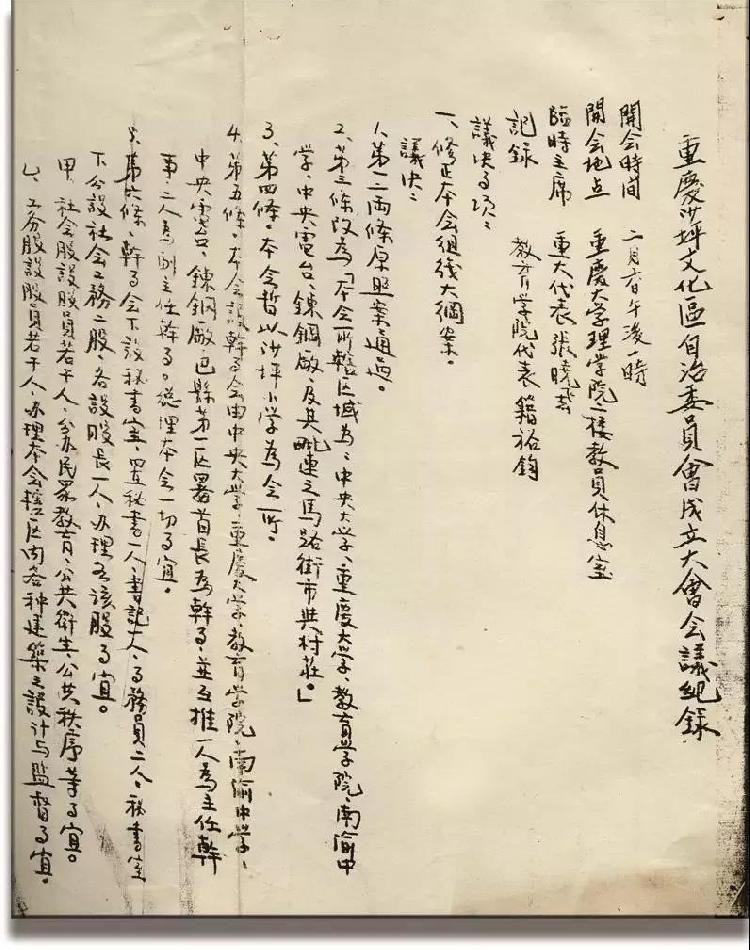 重慶沙坪文化區自治委員會成立大會会議紀錄
開会時间 二月六日午後一時
開会地点 重慶大学理学院二楼教員休息室
臨時主席 重大代表張曉
記録 教育学院代表籍裕鈞
議决事項：
一、修正本会組织大綱案。
議决：
1、第一二兩條原照案通过。
2、第三條改為「本会所轄区域為：中央大学、重慶大学、教育学院、南渝中
学、中央電台、鍊鋼廠、及其毗連之馬路街市與村莊。」
3、第四條。本会暫以沙坪小学為会所。
4、第五條。本会設幹事会由中央大学、重慶大学、教育学院、南渝中学、
中央電台、鍊鋼廠、巴縣第一区署首長為幹事、並互推一人為主任幹
事、二人為副主任幹事。總理本会一切事宜。
5、第六條、幹事会下設秘書室、置秘書一人、書記人、事務員二人。秘書室
下分設社会工務二股、各設股長一人、办理各該股事宜。
甲、社会股設股員若干人、分办民眾教育、公共衛生、公共秩序等事宜。
乙、工务股設股員若干人、办理本会轄区内各种建築之設计与監督事宜。